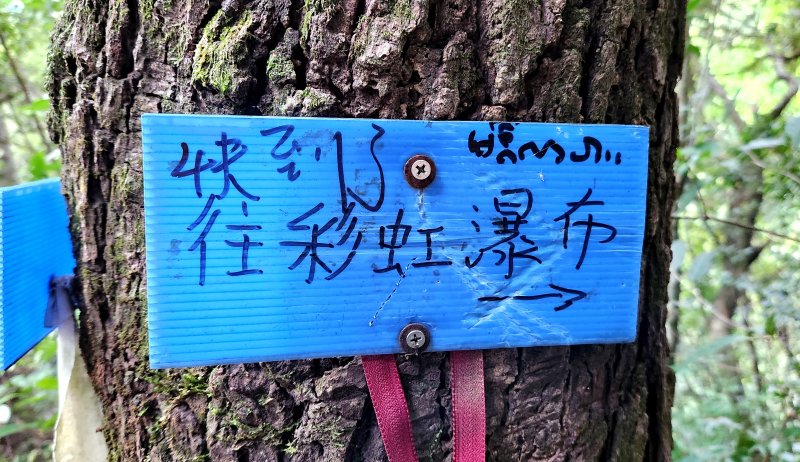 快到了
往彩虹瀑布
→